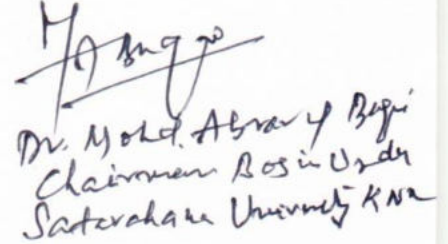 Dr. Mohd. Abrar ul Baqui
Chairman Bos in Urdu
Satavahana University KNR